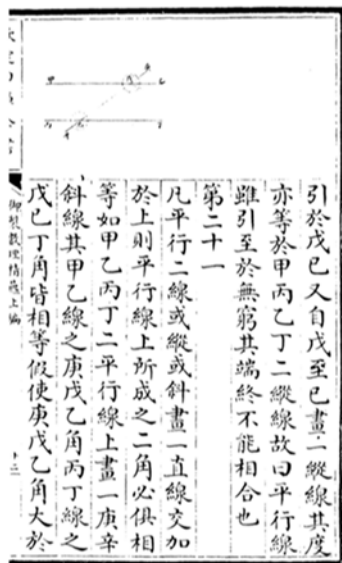 引於戊己又自戊至己畫一縱線其度
亦等於甲丙乙丁二縱線故曰平行線
雖引至於無窮其端終不能相合也
第二十一
凡平行二線或縱或斜畫一直線交加
於上則平行線上所成之二角必俱相
等如甲乙丙丁二平行線上畫一庚辛
斜線其甲乙線之庚戊乙角丙丁線之
戊己丁角皆相等假使庚戊乙角大於
御製數理精蘊上編